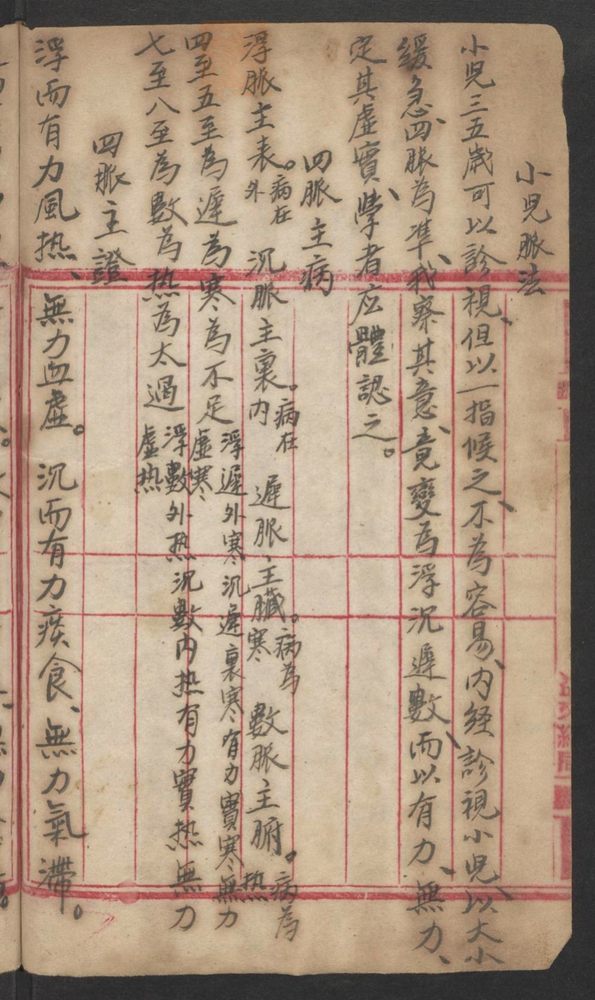 小児脉法
小児三五歳可以診視、但以一指候之、不為容易、内経診視小児、以大小
緩急、四脉為準、我察其意、竟變為浮沉遲數、而以有力、無力、
定其虛實、學者应體認之。
四脉主病
浮脉主表。病在外 沉脉主裏。病在内 遲脉主臟。病為寒 數脉主腑。病為热
四至五至為遲為寒為不足 浮遲外寒沉遲裏寒有力實寒無力虛寒
七至八至為數為热為太過 浮數外热沉數内热有力實热無力虛热
四脉主證
浮而有力風热、無力血虛。沉而有力痰食、無力氣滯。